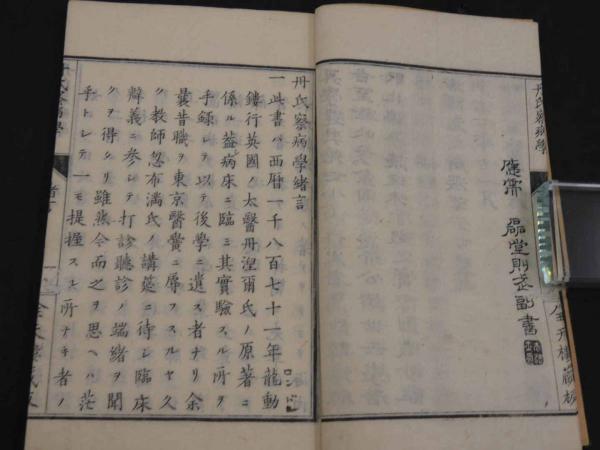 丹氏察病學
應需 
堂則
書
丹氏察病學緒言
一此書ハ西暦一千八百七十一年龍動
鏤行英國ノ太醫丹涅爾氏ノ原著ニ
係ル蓋病床ニ臨ミ其實驗スル所ヲ
手録シテ以テ後學ニ遺ス者ナリ余
曩昔職ヲ東京醫黌ニ辱フスルヤ久
ク教師忽布満氏ノ講莚ニ侍シ臨床
辯義ニ参シテ打診聽診ノ端緒ヲ聞
クヲ得タリ雖然今而之ヲ思ヘハ茫
乎トシテ一モ提握スル所ナキ者ノ